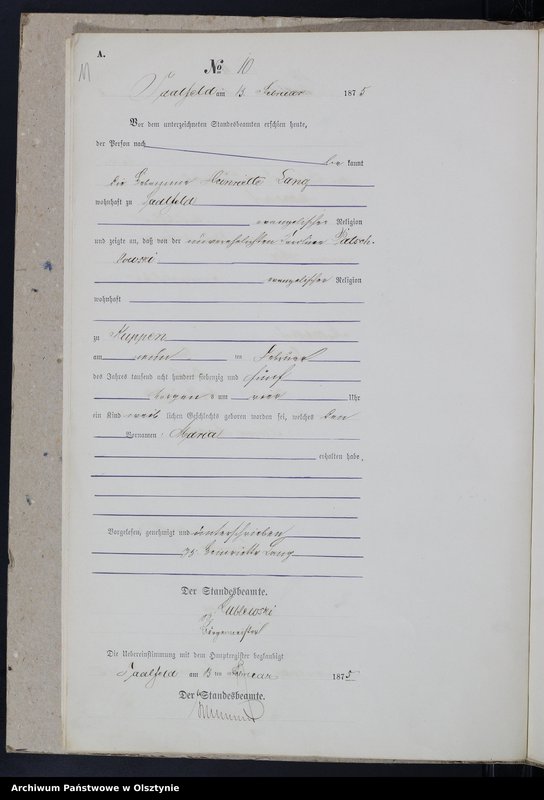 A.
11
No 10
Saalfeld am 13 Februar 1875
Vor dem unterzeichneten Standesbeamten erschien heute,
der Person nach
kannt
die Hebamme Henriette Lang
wohnhaft zu Saalfeld
evangelischer Religion
und zeigte an, daß von der unverehelichten
evangelischer Religion
wohnhaft
zu Kuppen
am ten Februar
des Jahres tausend acht hundert siebenzig und fünf
Morgens um vier Uhr
ein Kind weiblichen Geschlechts geboren worden sei, welches den
Vornamen Maria
erhalten habe,
Vorgelesen, genehmigt und unterschrieben
Henriette Lang
Der Standesbeamte.
Bürgermeister
Die Uebereinstimmung mit dem Hauptregister beglaubigt
Saalfeld am 13 ten Februar 1875
Der Standesbeamte.
Archiwum Państwowe w Olsztynie